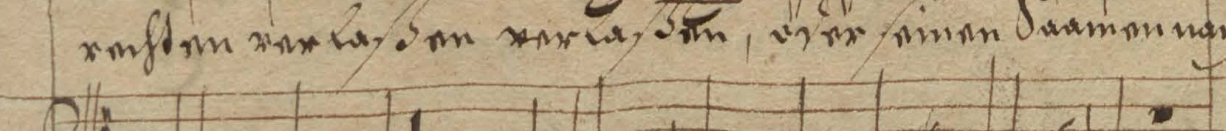 rechten verlaßen verlaßen, oder seinen Saamen na